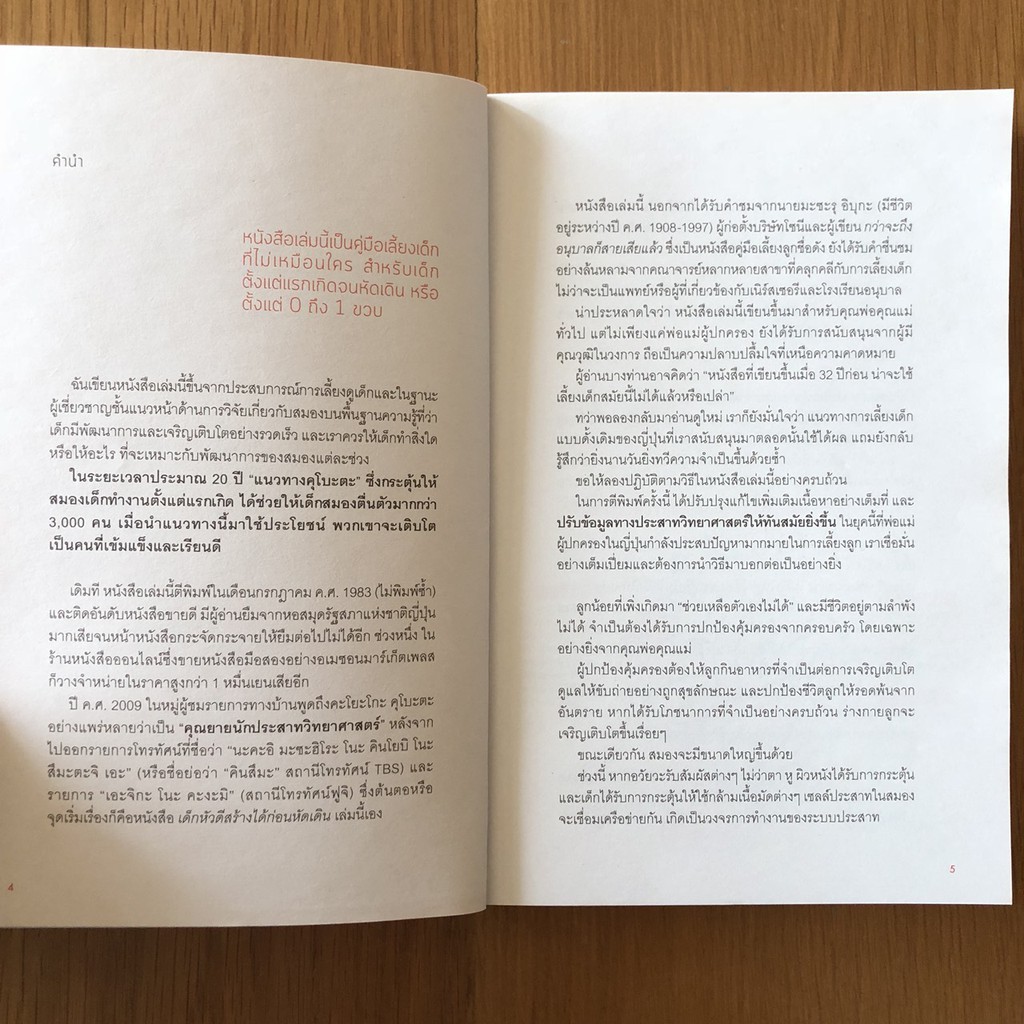 คำนำ
หนังสือเล่มนี้เป็นคู่มือเลี้ยงเด็ก
ที่ไม่เหมือนใคร สำหรับเด็ก
ตั้งแต่แรกเกิดจนหัดเดิน หรือ
ตั้งแต่ 0 ถึง 1 ขวบ
ฉันเขียนหนังสือเล่มนี้ขึ้นจากประสบการณ์การเลี้ยงดูเด็กและในฐานะ
ผู้เชี่ยวชาญชั้นแนวหน้าด้านการวิจัยเกี่ยวกับสมองบนพื้นฐานความรู้ที่ว่า
เด็กมีพัฒนาการและเจริญเติบโตอย่างรวดเร็ว และเราควรให้เด็กทำสิ่งใด
หรือให้อะไร ที่จะเหมาะกับพัฒนาการของสมองแต่ละช่วง
ในระยะเวลาประมาณ 20 ปี “แนวทางคุโบะตะ” ซึ่งกระตุ้นให้
สมองเด็กทำงานตั้งแต่แรกเกิด ได้ช่วยให้เด็กสมองตื่นตัวมากกว่า
3,000 คน เมื่อนำแนวทางนี้มาใช้ประโยชน์ พวกเขาจะเติบโต
เป็นคนที่เข้มแข็งและเรียนดี
เดิมที หนังสือเล่มนี้ตีพิมพ์ในเดือนกรกฎาคม ค.ศ. 1983 (ไม่พิมพ์ซ้ำ)
และติดอันดับหนังสือขายดี มีผู้อ่านยืมจากหอสมุดรัฐสภาแห่งชาติญี่ปุ่น
มากเสียจนหน้าหนังสือกระจัดกระจายให้ยืมต่อไปไม่ได้อีก ช่วงหนึ่ง ใน
ร้านหนังสือออนไลน์ซึ่งขายหนังสือมือสองอย่างอเมซอนมาร์เก็ตเพลส
ก็วางจำหน่ายในราคาสูงกว่า 1 หมื่นเยนเสียอีก
ปี ค.ศ. 2009 ในหมู่ผู้ชมรายการทางบ้านพูดถึงคะโยะโกะ คุโบะตะ
อย่างแพร่หลายว่าเป็น “คุณยายนักประสาทวิทยาศาสตร์” หลังจาก
ไปออกรายการโทรทัศน์ที่ชื่อว่า “นะคะอิ มะซะฮิโระ โนะ คินโยบิ โนะ
สึมะตะจิ เอะ” (หรือชื่อย่อว่า “คินสึมะ” สถานีโทรทัศน์ TBS) และ
รายการ “เอะจิกะ โนะ คะงะมิ” (สถานีโทรทัศน์ฟูจิ) ซึ่งต้นตอหรือ
จุดเริ่มเรื่องก็คือหนังสือ เด็กหัวดีสร้างได้ก่อนหัดเดิน เล่มนี้เอง
4
หนังสือเล่มนี้ นอกจากได้รับคำชมจากนายมะซะรุ อิบุกะ (มีชีวิต
อยู่ระหว่างปี ค.ศ. 1908-1997) ผู้ก่อตั้งบริษัทโซนี่และผู้เขียน กว่าจะถึง
อนุบาลก็สายเสียแล้ว ซึ่งเป็นหนังสือคู่มือเลี้ยงลูกชื่อดัง ยังได้รับคำชื่นชม
อย่างล้นหลามจากคณาจารย์หลากหลายสาขาที่คลุกคลีกับการเลี้ยงเด็ก
ไม่ว่าจะเป็นแพทย์หรือผู้ที่เกี่ยวข้องกับเนิร์สเซอรีและโรงเรียนอนุบาล
น่าประหลาดใจว่า หนังสือเล่มนี้เขียนขึ้นมาสำหรับคุณพ่อคุณแม่
ทั่วไป แต่ไม่เพียงแค่พ่อแม่ผู้ปกครอง ยังได้รับการสนับสนุนจากผู้มี
คุณวุฒิในวงการ ถือเป็นความปลาบปลื้มใจที่เหนือความคาดหมาย
ผู้อ่านบางท่านอาจคิดว่า “หนังสือที่เขียนขึ้นเมื่อ 32 ปีก่อน น่าจะใช้
เลี้ยงเด็กสมัยนี้ไม่ได้แล้วหรือเปล่า”
ทว่าพอลองกลับมาอ่านดูใหม่ เราก็ยังมั่นใจว่า แนวทางการเลี้ยงเด็ก
แบบดั้งเดิมของญี่ปุ่นที่เราสนับสนุนมาตลอดนั้นใช้ได้ผล แถมยังกลับ
รู้สึกว่ายิ่งนานวันยิ่งทวีความจำเป็นขึ้นด้วยซ้ำ
ขอให้ลองปฏิบัติตามวิธีในหนังสือเล่มนี้อย่างครบถ้วน
ในการตีพิมพ์ครั้งนี้ ได้ปรับปรุงแก้ไขเพิ่มเติมเนื้อหาอย่างเต็มที่ และ
ปรับข้อมูลทางประสาทวิทยาศาสตร์ให้ทันสมัยยิ่งขึ้น ในยุคนี้ที่พ่อแม่
ผู้ปกครองในญี่ปุ่นกำลังประสบปัญหามากมายในการเลี้ยงลูก เราเชื่อมั่น
อย่างเต็มเปี่ยมและต้องการนำวิธีมาบอกต่อเป็นอย่างยิ่ง
ลูกน้อยที่เพิ่งเกิดมา “ช่วยเหลือตัวเองไม่ได้” และมีชีวิตอยู่ตามลำพัง
ไม่ได้ จำเป็นต้องได้รับการปกป้องคุ้มครองจากครอบครัว โดยเฉพาะ
อย่างยิ่งจากคุณพ่อคุณแม่
ผู้ปกป้องคุ้มครองต้องให้ลูกกินอาหารที่จำเป็นต่อการเจริญเติบโต
ดูแลให้ขับถ่ายอย่างถูกสุขลักษณะ และปกป้องชีวิตลูกให้รอดพ้นจาก
อันตราย หากได้รับโภชนาการที่จำเป็นอย่างครบถ้วน ร่างกายลูกจะ
เจริญเติบโตขึ้นเรื่อยๆ
ขณะเดียวกัน สมองจะมีขนาดใหญ่ขึ้นด้วย
ช่วงนี้ หากอวัยวะรับสัมผัสต่างๆ ไม่ว่าตา หู ผิวหนังได้รับการกระตุ้น
และเด็กได้รับการกระตุ้นให้ใช้กล้ามเนื้อมัดต่างๆ เซลล์ประสาทในสมอง
จะเชื่อมเครือข่ายกัน เกิดเป็นวงจรการทำงานของระบบประสาท
5